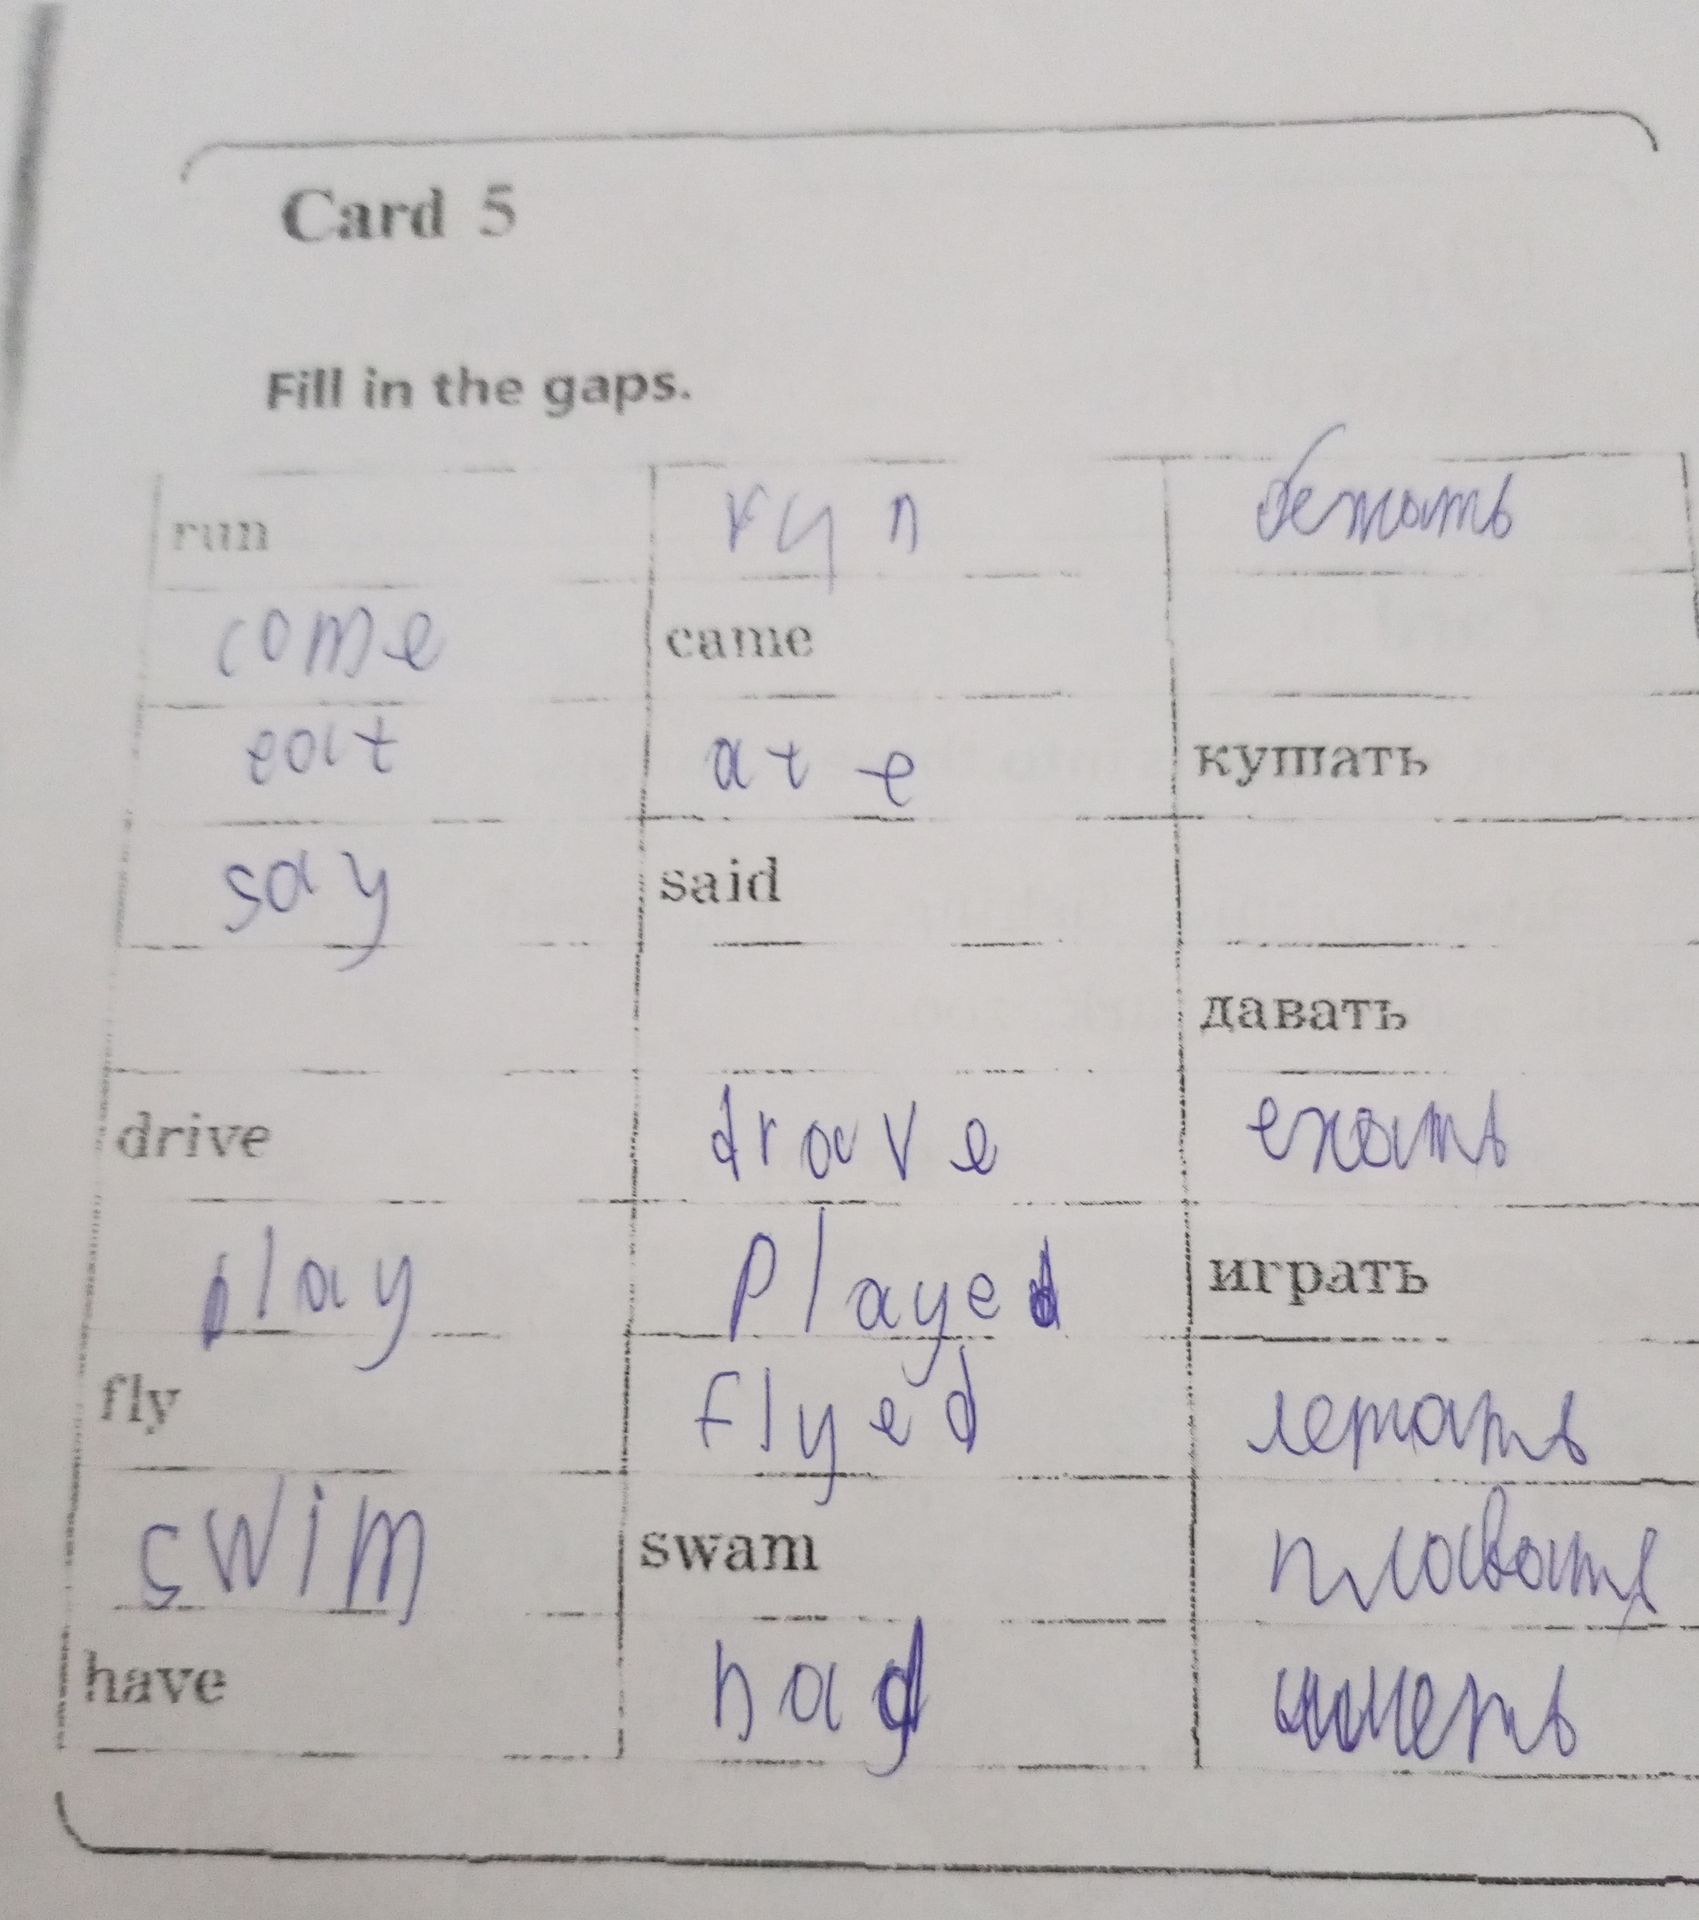 Card 5
Fill in the gaps.
run ryn бежать
come came
eat ate кушать
say said
давать
drive drave ехать
play played играть
fly flyed летать
swim swam плавать
have had иметь